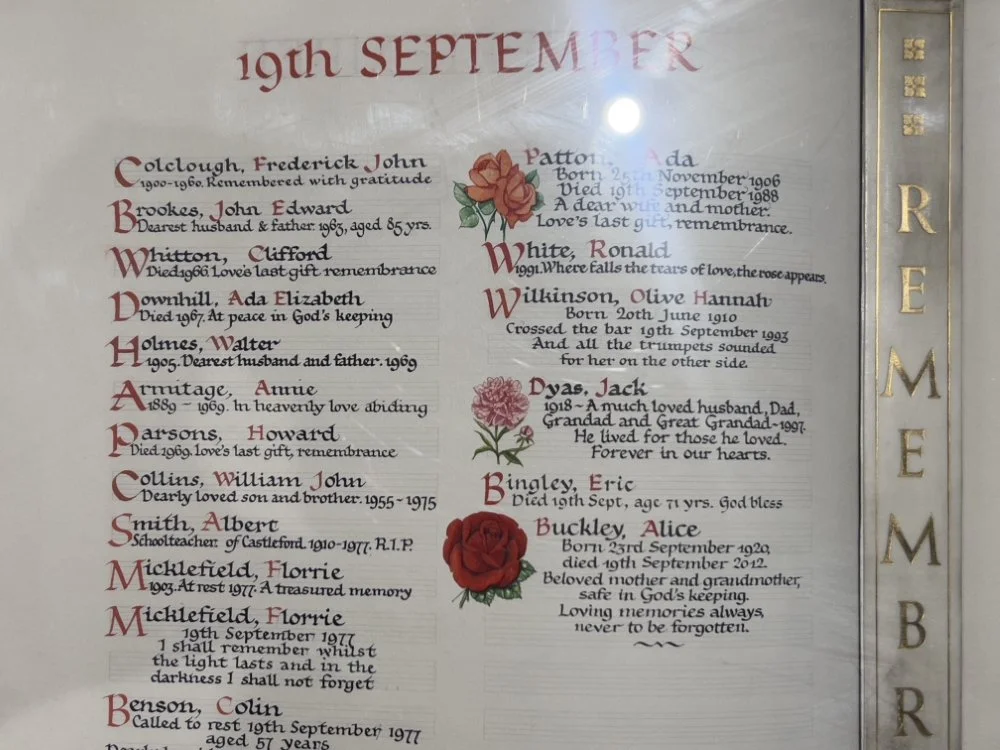 19th SEPTEMBER
Colclough, Frederick John
1900-1960. Remembered with gratitude
Brookes, John Edward
Dearest husband & father 1963, aged 85 yrs.
Whitton, Clifford
Died 1966. Love's last gift remembrance
Downhill, Ada Elizabeth
Died 1967. At peace in God's keeping
Holmes, Walter
1905. Dearest husband and father. 1969
Armitage, Annie
1889 - 1969. In heavenly love abiding
Parsons, Howard
Died 1969. love's last gift, remembrance
Collins, William John
Dearly loved son and brother. 1955 - 1975
Smith, Albert
Schoolteacher of Castleford. 1910-1977. R.I.P.
Micklefield, Florrie
1903. At rest 1977. A treasured memory
Micklefield, Florrie
19th September 1977
I shall remember whilst
the light lasts and in the
darkness I shall not forget
Benson, Colin
Called to rest 19th September, 1977
aged 57 years
Patton, Ada
Born 25th November 1906
Died 19th September 1988
A dear wife and mother.
Love's last gift, remembrance.
White, Ronald
1991. Where falls the tears of love, the rose appears.
Wilkinson, Olive Hannah
Born 20th June 1910
Crossed the bar 19th September 1993
And all the trumpets sounded
for her on the other side.
Dyas, Jack
1918 - A much loved husband, Dad,
Grandad and Great Grandad - 1997.
He lived for those he loved.
Forever in our hearts.
Bingley, Eric
Died 19th Sept, age 71 yrs. God bless
Buckley, Alice
Born 23rd September 1920,
died 19th September 2012.
Beloved mother and grandmother,
safe in God's keeping.
Loving memories always,
never to be forgotten.
REMEMBR